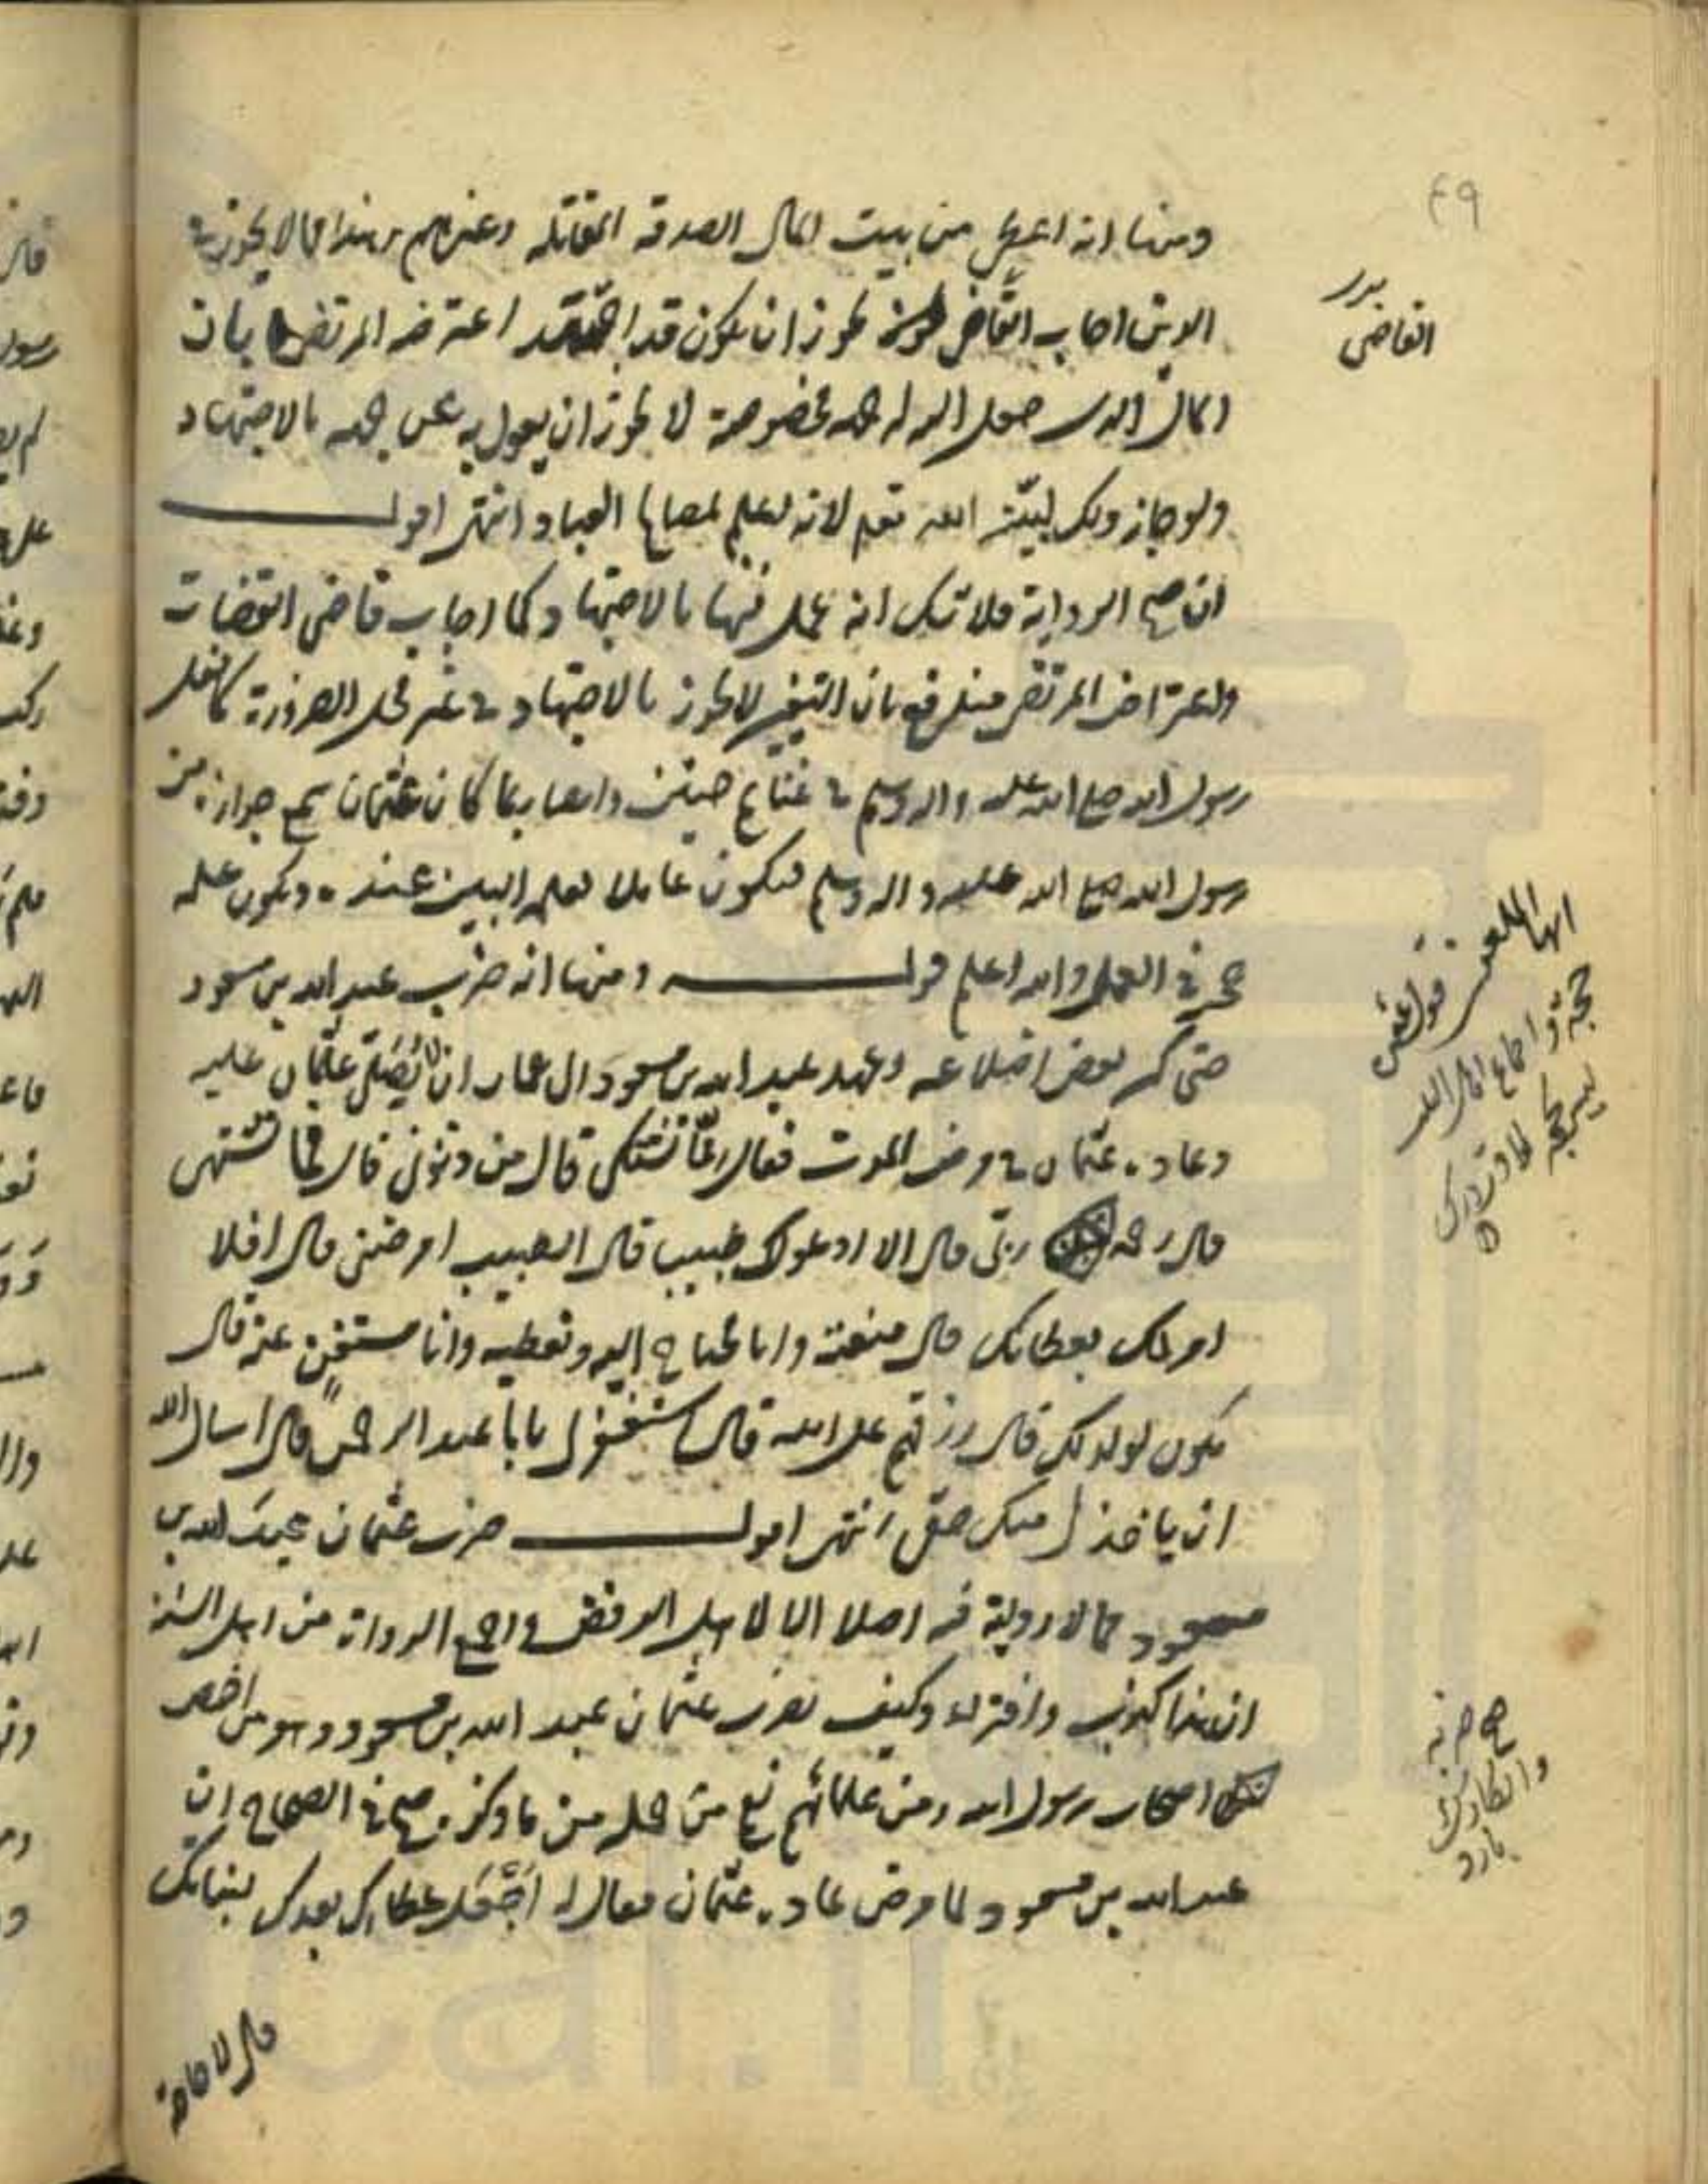 ٤٩
ومنها انه اعطى من بيت المال الصدقة المقاتلة وغيرهم وهذا مما لا يجوز في
الدين اجاب القاضي يجوز ان يكون قد اجتهد اعترضه المرتضى بان
المال الذي جعل الله له جهة مخصوصة لا يجوز ان يعدل به عن جهته بالاجتهاد
ولو جاز ذلك لبينه الله تعالى لانه اعلم بمصالح العباد انتهى اقول
ان صح الرواية فلا شك انه عمل فيها بالاجتهاد كما اجاب قاضي القضات
واعتراض المرتضى مندفع بان التغيير لا يجوز بالاجتهاد في غير محل الضرورة كما فعل
رسول الله صلى الله عليه واله وسلم في غنايم حنين وايضا ربما كان عثمان سمع جوازه من
رسول الله صلى الله عليه واله وسلم فيكون عاملا بعلمه اليقين عنده ويكون علمه
حجة في العمل والله اعلم قوله ومنها انه ضرب عبد الله بن مسعود
حتى كسر بعض اضلاعه وعهد عبد الله بن مسعود الى عمار ان لا يصلي عثمان عليه
وعاده عثمان في مرض الموت فقال مما تشتكي قال من ذنوبي قال فما تشتهي
قال رحمة ربي قال الا ادعو لك طبيبا قال الطبيب امرضني قال افلا
امر لك بعطائك قال منعته وانا محتاج اليه وتعطيه وانا مستغن عنه قال
يكون لولدك قال رزقهم على الله قال استغفر لي يا ابا عبد الرحمن قال اسال الله
ان ياخذ لي منك حقي انتهى اقول ضرب عثمان عبد الله بن
مسعود مما لا رواية فيه اصلا الا لاهل الرفض واجمع الرواة من اهل السنة
ان هذا كذب وافتراء وكيف يضرب عثمان عبد الله بن مسعود وهو من اخص
اصحاب رسول الله ومن علمائهم نعم من جملة من ما ذكره صح في الصحاح ان
عبد الله بن مسعود لما مرض عاده عثمان فقال له اجعل عطاك بعدك لبناتك
قال لا حاجة
القاضي
ايها الملعون قول
حجة واجماع
ليس بحجة
صح ضربه
وانكارك
بارد